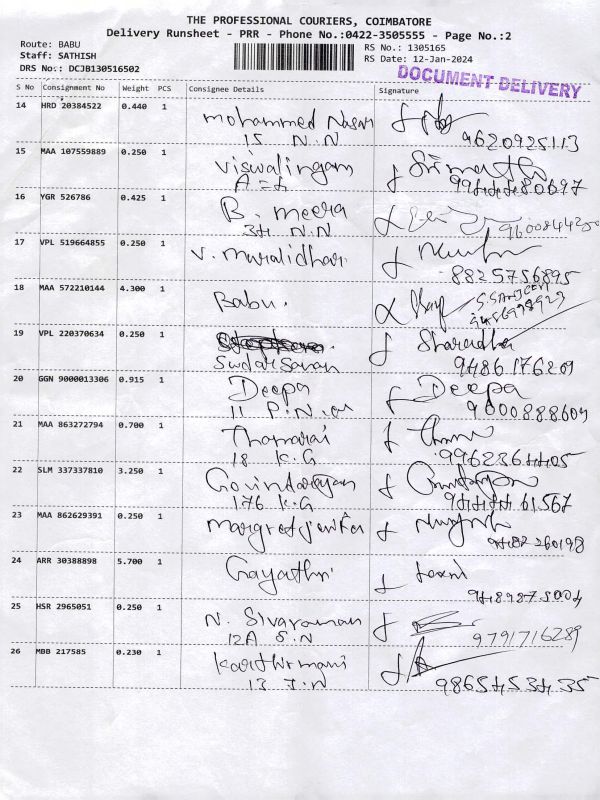 THE PROFESSIONAL COURIERS, COIMBATORE
Delivery Runsheet - PRR - Phone No.:0422-3505555 - Page No.:2
Route: BABU
Staff: SATHISH
DRS No.: DCJB130516502
RS No.: 1305165
RS Date: 12-Jan-2024
DOCUMENT DELIVERY
S No Consignment No Weight PCS Consignee Details Signature
14 HRD 20384522 0.440 1 Mohammed Nasar
15 N.N 9620925113
15 MAA 107559889 0.250 1 Viswalingam
16 YGR 526786 0.425 1 B. meera
34 N.N 9600844250
17 VPL 519664855 0.250 1 V. Muralidhar
8825756895
18 MAA 572210144 4.300 1 Babu.
19 VPL 220370634 0.250 1 Sharadha
Sudarsanan 9486176209
20 GGN 9000013306 0.915 1 Deepa Deepa
11 P.N.
21 MAA 863272794 0.700 1 Thamarai
18 K.G 9962364405
22 SLM 337337810 3.250 1 Govindarajan
176 K.G 9444461567
23 MAA 862629391 0.250 1
24 ARR 30388898 5.700 1 Gayathri
25 HSR 2965051 0.250 1 N. Sivaraman
12A S.N 9791716289
26 MBB 217585 0.230 1
13 J.N 9865453435